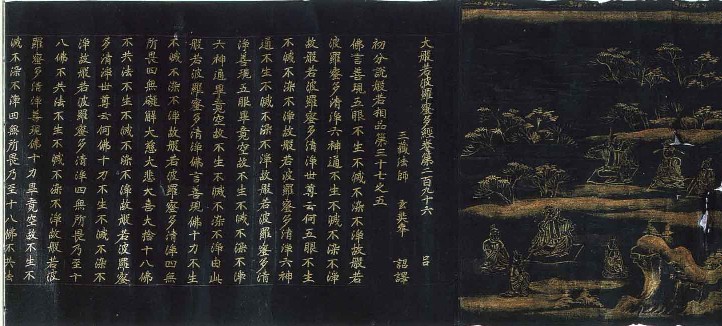 大般若波羅蜜多經卷第二百九十六 呂
三藏法師 玄奘奉 詔譯
初分說般若相品第三十七之五
佛言善現五眼不生不滅不染不淨故般若
波羅蜜多清淨六神通不生不滅不染不淨
故般若波羅蜜多清淨世尊云何五眼不生
不滅不染不淨故般若波羅蜜多清淨六神
通不生不滅不染不淨故般若波羅蜜多清
淨善現五眼畢竟空故不生不滅不染不淨
六神通畢竟空故不生不滅不染不淨由此
般若波羅蜜多清淨佛言善現佛十力不生
不滅不染不淨故般若波羅蜜多清淨四無
所畏四無礙解大慈大悲大喜大捨十八佛
不共法不生不滅不染不淨故般若波羅蜜
多清淨世尊云何佛十力不生不滅不染不
淨故般若波羅蜜多清淨四無所畏乃至十
八佛不共法不生不滅不染不淨故般若波
羅蜜多清淨善現佛十力畢竟空故不生不
滅不染不淨四無所畏乃至十八佛不共法